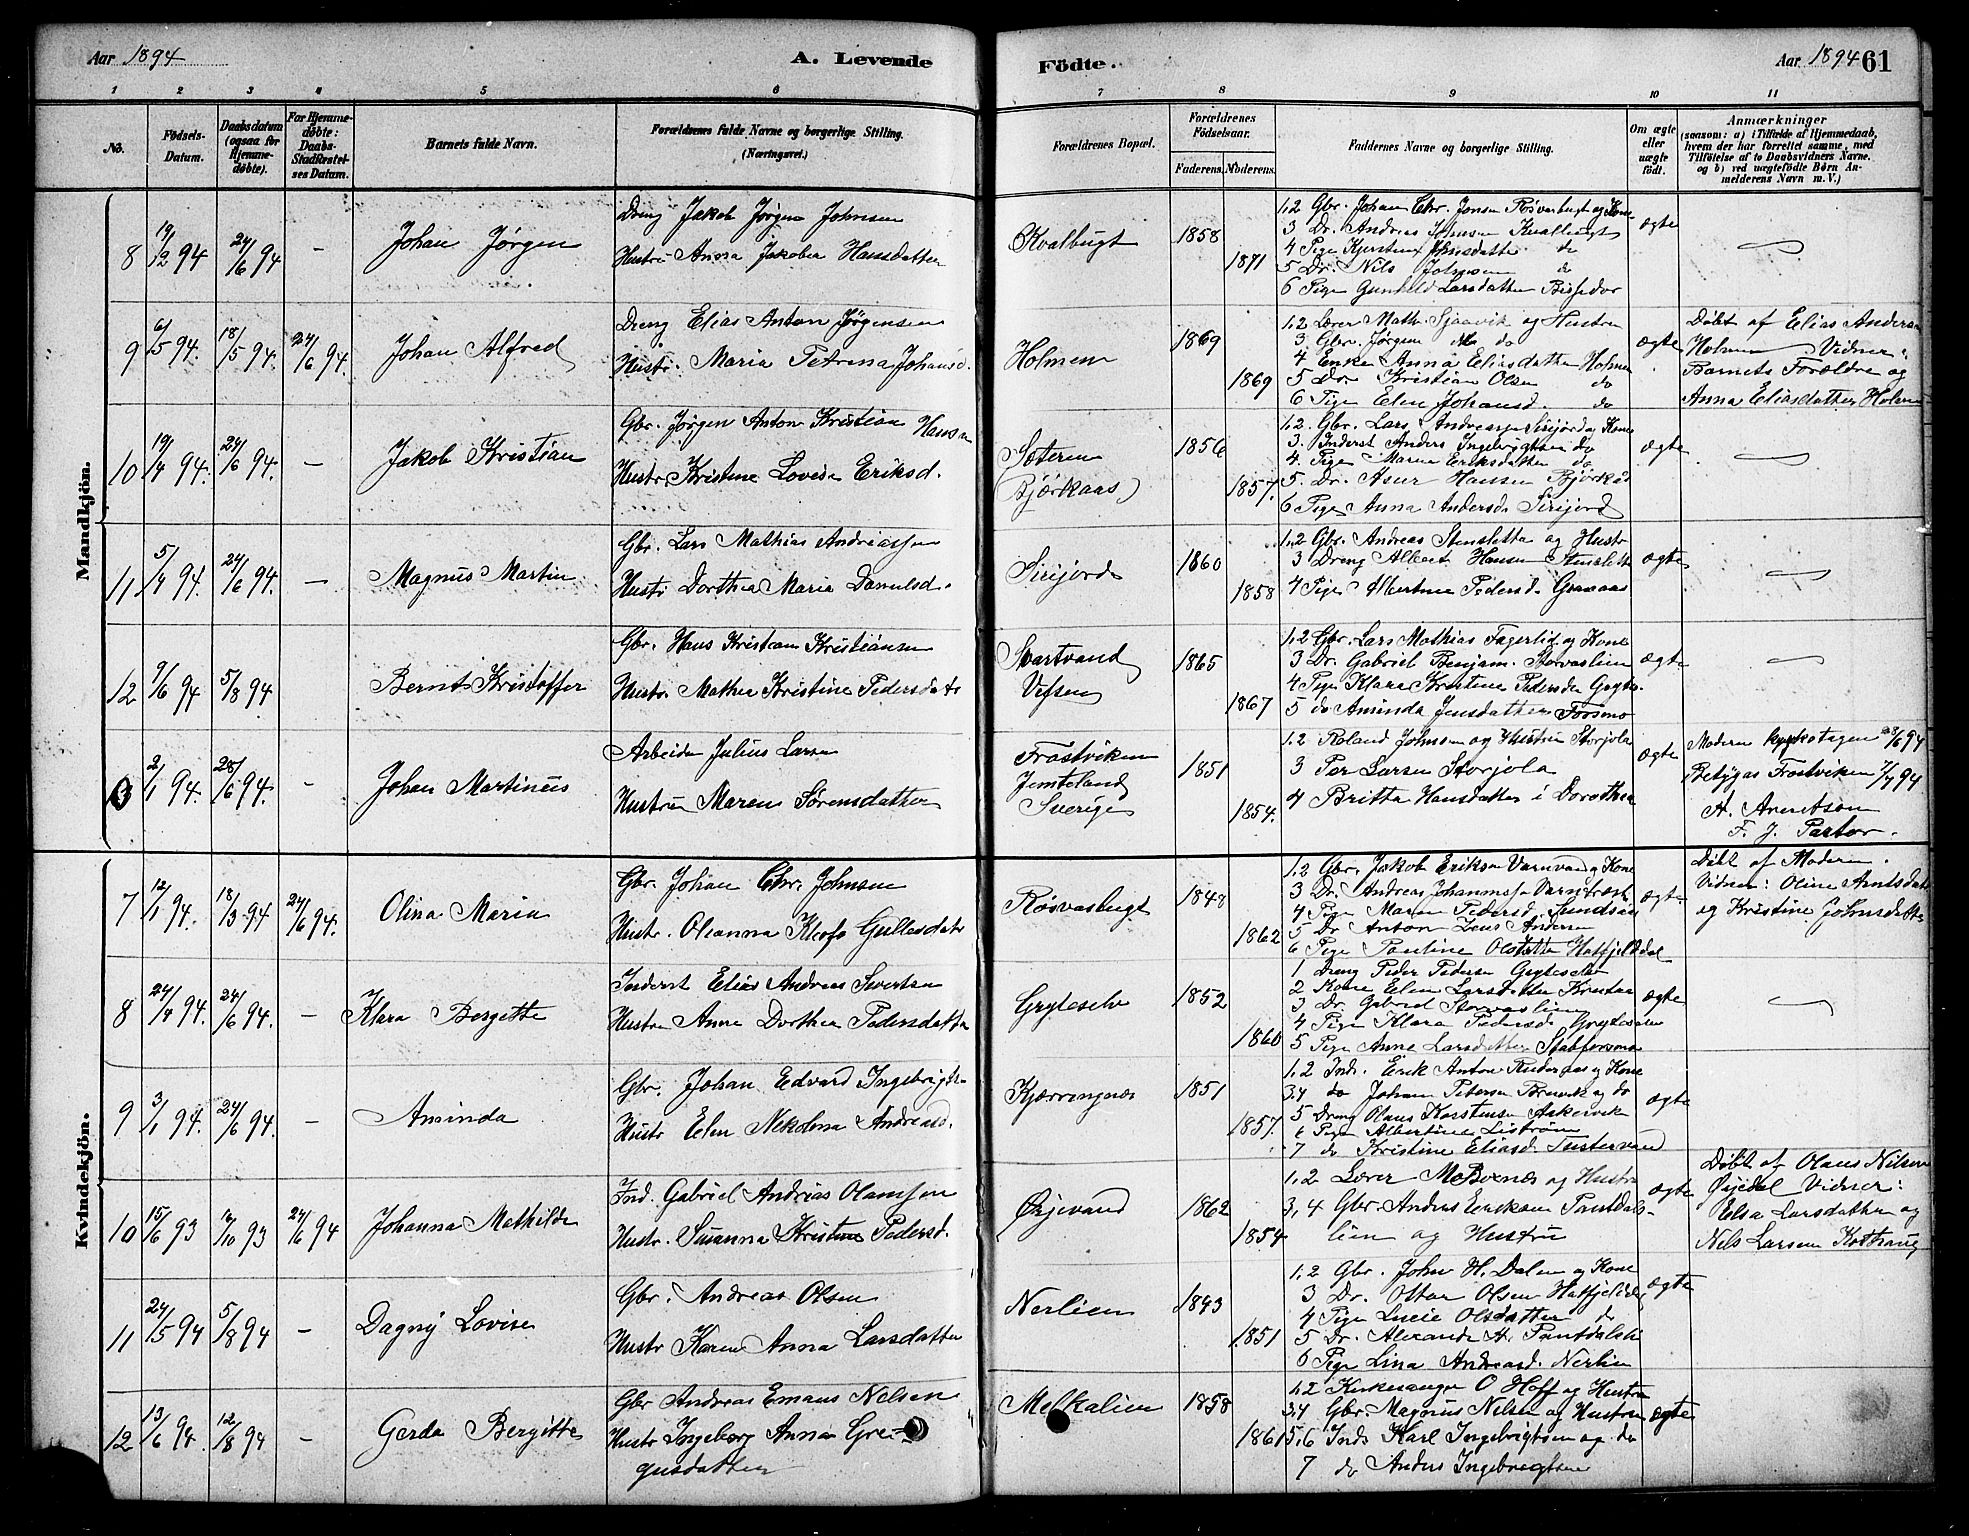 Aar 1894
A. Levende
Födte.
Aar 1894 61
1 2 3 4 5 6 7 8 9 10 11
No.
Födsels-Datum.
Daabsdatum (ogsaa for Hjemme-döbte).
For Hjemme-döbte: Daabs-Stadfæstel-ses Datum.
Barnets fulde Navn.
Forældrenes fulde Navne og borgerlige Stilling. (Næringsvei.)
Forældrenes Bopæl.
Forældrenes Födselsaar.
Faderens. Moderens.
Faddernes Navne og borgerlige Stilling.
Om ægte eller uægte födt.
Anmærkninger
(saasom: a) i Tilfælde af Hjemmedaab, hvem der har forrettet samme, med Tilföielse af to Daabsvidners Navne. og b) ved uægtefödte Börn An-melderens Navn m. V.)
Mandkjön.
8 19/12 94 24/6 94 – Johan Jørgen
Dreng Jakob Jørgen Johnsen
Hustru Anna Jakobia Hansdatter
Kvalbugt 1858 1871
1,2 Gbr. Johan Chr. Jonsen Røsvasbugt og Kone
3 Dr. Andreas Johnsen Kvalbugt
4 Pige Kjerstine Johnsdatter do
5 Dr. Nils Johnsen do
6 Pige Gunhild Larsdatter
ægte
9 6/5 94. 18/5 94. 24/6 94. Johan Alfred
Dreng Elias Anton Jørgensen
Hustr. Maria Petrina Johansd.
Holmen 1869 1869
1,2 Lærer Math. Sjaavik og Hustru
3 Gbr. Jørgen
4 Enke Anna Eliasdatter Holmen
5 Dr. Kristian Olsen do
6 Pige Elen Johansd. do
ægte
Döbt af Elias Andersen
Holmen Vidner:
Barnets Forældre og
Anna Eliasdatter Holmen
10 19/4 94. 24/6 94. – Jakob Kristian
Gbr. Jørgen Anton Kristian Hansen
Hustr. Kristine Lovisa Eriksd.
Sæteren
(Bjørkaas)
1856 1857.
1,2. Gbr. Lars Andreassen Sirijord og Kone
3. Inderst Anders Ingebrigtsen do
4. Pige Maria Eriksdatter do
5. Dr. Asur Hansen Bjørkås
6 Pige Anna Andersd. Sirijord
ægte
11 5/4 94. 24/6 94. – Magnus Martin
Gbr. Lars Mathias Andreassen
Hustr Dorthea Maria Danielsd.
Sirijord 1860 1858
1,2 Gbr. Andreas Stensletta og Hustr
3 Dreng Albert Hansen Stenslett
4 Pige Albertine Pedersd. Granaas
ægte
12 9/6 94 5/8 94 Bernt Kristoffer
Gbr. Hans Kristian Kristiansen
Hustr. Mathea Kristine Pedersdatt
Svartvand
Vefsen
1865 1867
1,2 Gbr. Lars Mathias Fagerlid og Kone
3 Dr. Gabriel Benjam. Storvaslien
4 Pige Klara Kristine Pedersda Grytes.
5 do Aminda Jensdatter Forsmo
ægte
0 2/1 94. 28/6 94. – Johan Martinus
Arbeider Julius Larsen
Hustru Maren Sørensdatter
Frostviken
Jemteland
Sverige
1851 1854.
1,2 Roland Johnsen og Hustru Storjola
3 Per Larsen Storjola
4 Britta Hansdatter i Dorothea
ægte
Modern kyrkotagen 28/6 94
Betygas Frostviken 7/7 94
A. Arentson
F. J. Pastor.
Kvindekjön.
7 12/1 94. 18/3 94 24/6 94. Olina Maria
Gbr. Johan Chr. Johnsen
Hustr. Olianna Kleofa Gullesdatt
Røsvasbugt 1848 1862
1,2 Gbr. Jakob Eriksen Varnvand og Kone
3 Dr. Andreas Johannes
4 Pige Maren Pedersd. Sundsaas
5 Dr Anton Zeus Andersen
6 Pige Pauline Olsdatter Hatfjelddal
ægte
Döbt af Moderen.
Vidner: Oline Arntsdatt
og Kristine Johnsdatter
8 24/4 94. 24/6 94. – Klara Bergette
Inderst Elias Andreas Sivertsen
Hustru Anne Dorthea Pedersdatter
Gryteselv 1852 1860
1 Dreng Peder Pedersen Gryteselv
2 Kone Elen Larsdatter
3 Dr Gabriel Storvaslien
4 Pige Klara Pedersd. Gryteselv
5 Pige Anne Larsdatter Stabforsmo
ægte
9 3/1 94. 24/6 94. – Aminda
Gbr. Johan Edvard Ingebrigts.
Hustr Elen Nekolina Andreasd.
Kjærringnes 1851 1857.
1,2 Ind. Erik Anton og Kone
3,4 do Johan Petersen Brevik og do
5 Dreng Olaus Karstensen Aakervik
6 Pige Albertine
7 do Kristine Eliasd. Tustervand
ægte
10 15/6 93 1/10 93 24/6 94 Johanna Mathilde
Ind. Gabriel Andreas Olaussen
Hustr. Susanna Kristine Pedersd.
Ørjevand 1862 1854
1,2 Lærer og Hustru
3,4 Gbr. Anders Eriksen Pantdals-
lien og Hustru
ægte
Döbt af Olaus Nilsen
Ørjedal Vidner:
Elsa Larsdatter og
Nels Larsen
11 24/5 94 5/8 94 – Dagny Lovise
Gbr. Andreas Olsen
Hustr Karen Anna Larsdatter
Nerlien 1843 1851
1,2 Gbr. John H. Dalen og Kone
3 Dr. Ottar Olsen Hatfjeldd.
4 Pige Lucie Olsdatter do
5 Dr. Alexander A. Pantdalsli
6 Pige Lina Andreasd. Nerlien
ægte
12 13/6 94. 12/8 94 – Gerda Bergitte
Gbr Andreas Emaus Nelsen
Hustr Ingeborg Anna Gre-
gusdatter
Melkalien 1858 1861
1,2 Kirkesanger O Hoff og Hustru
3,4 Gbr. Magnus Nelsen og Hustru
5,6 Inds Karl Ingebrigtsen og do
7 do Anders Ingebregtsen
ægte